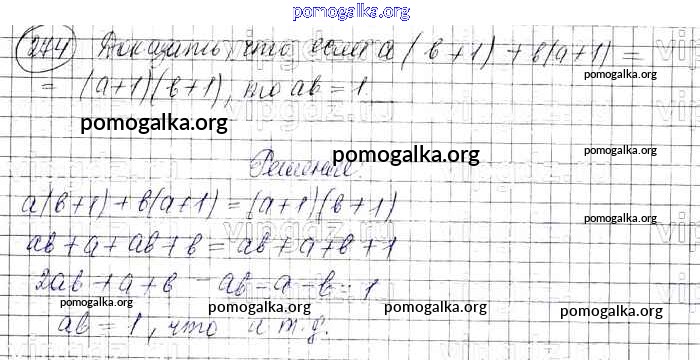 pomogalka.org
244 Доказать, что если a(b+1)+b(a+1)=
=(a+1)(b+1), то ab=1.
pomogalka.org
pomogalka.org
Решение
pomogalka.org
a(b+1)+b(a+1)=(a+1)(b+1)
pomogalka.org
ab+a+ab+b=ab+a+b+1
2ab+a+b-ab-a-b=1
pomogalka.org pomogalka.org pomogalka.org
ab=1, что и т.д.
pomogalka.org